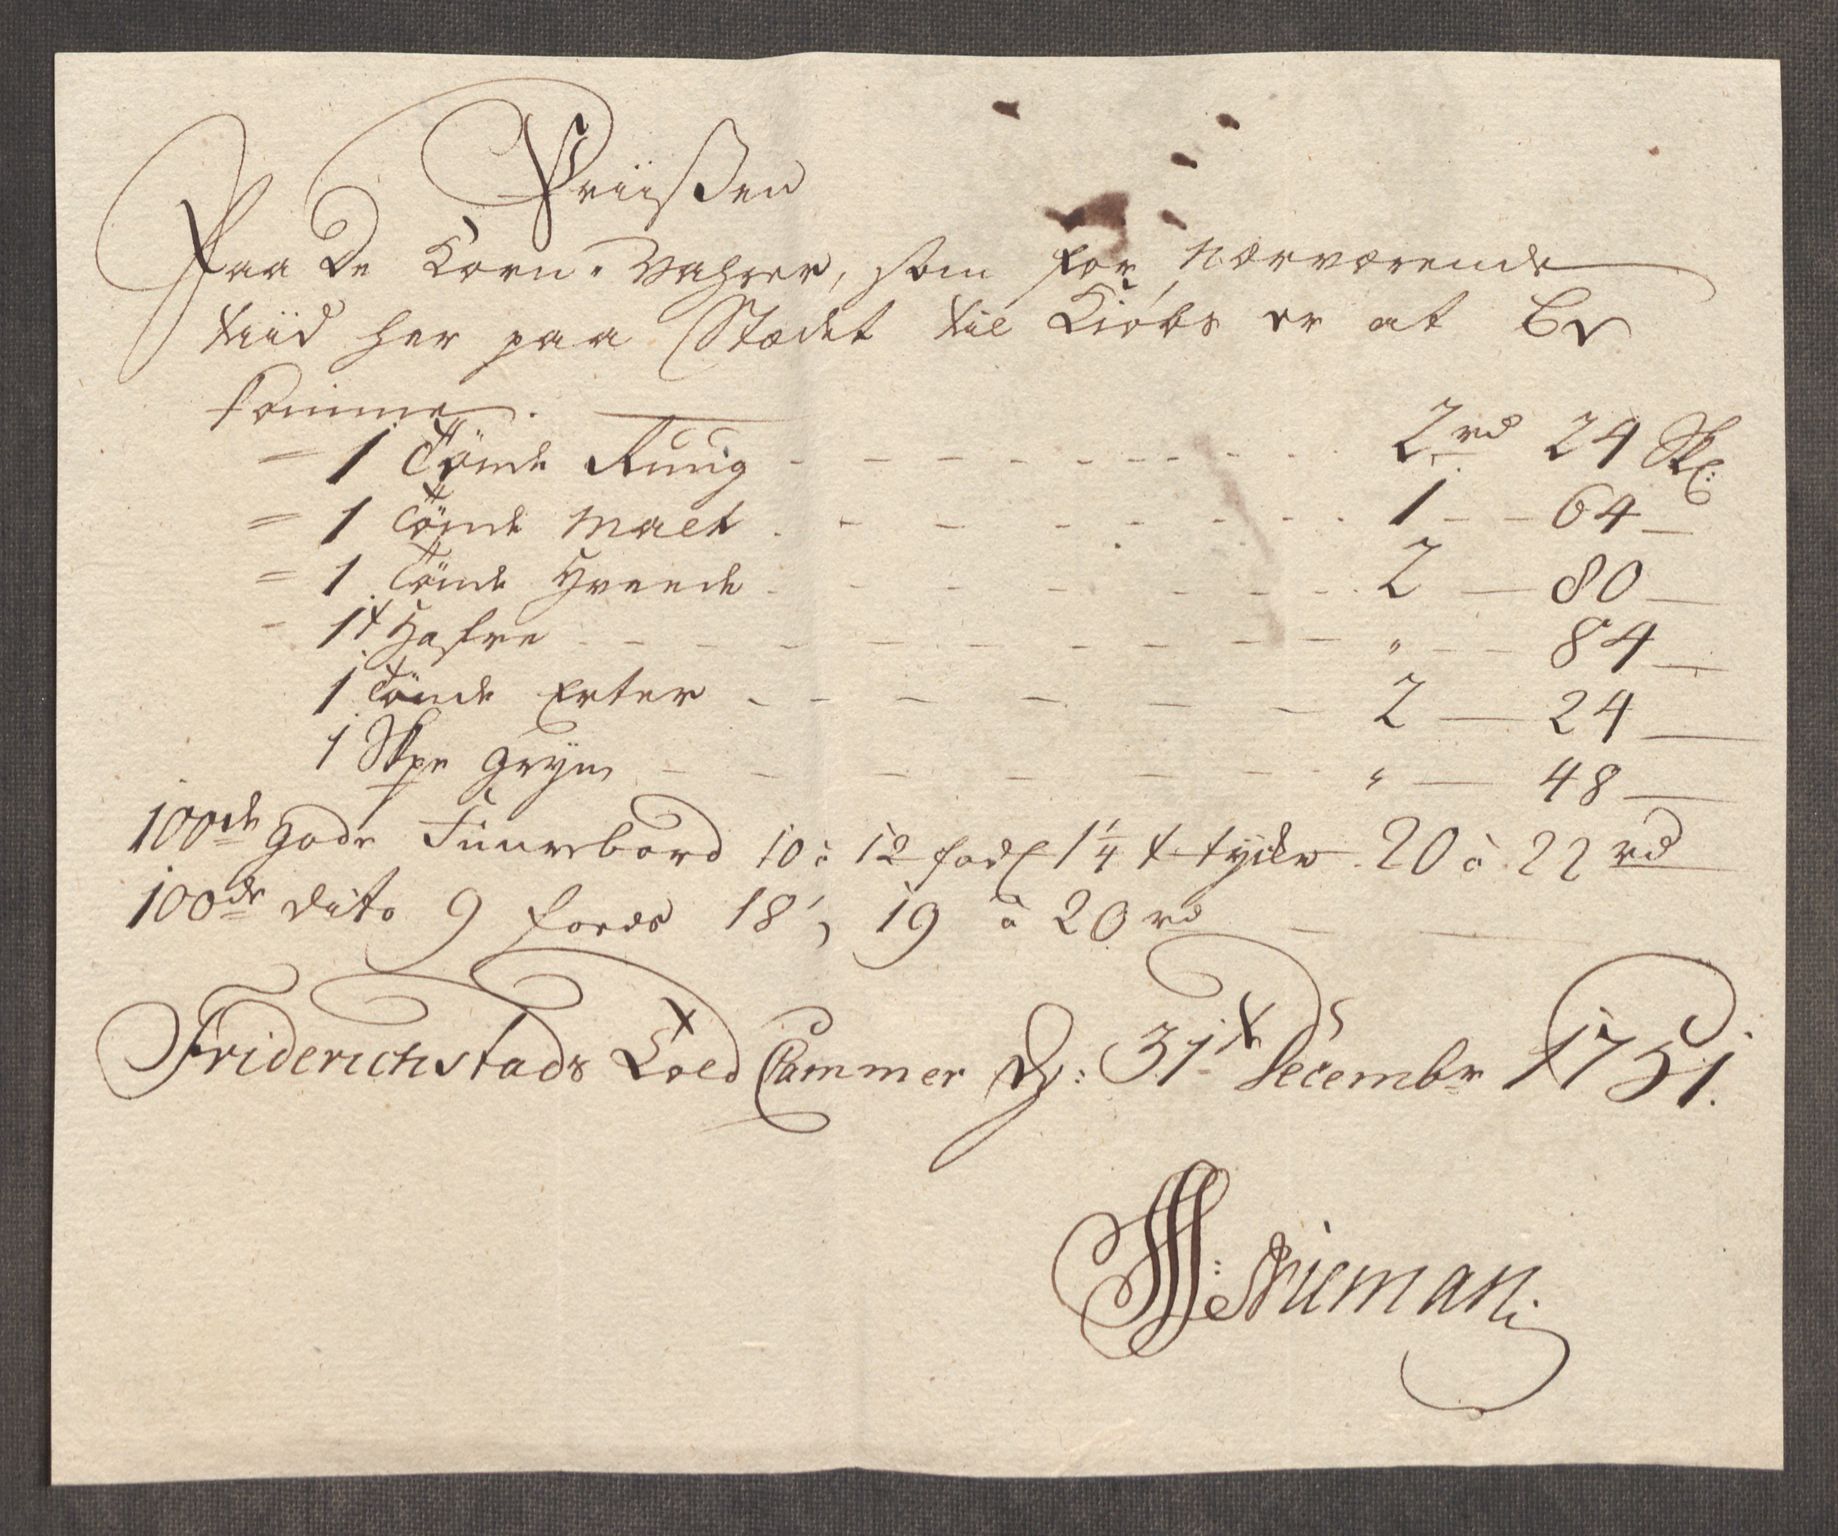 Priisen
Paa de Korn-Vahrer, som for nærværende
tiid her paa Stædet til Kiöbs er at Be
komme.
= 1 Tönde Ruug - - - 2 rd 24 Sk:
= 1 Tönde Malt - - - 1 - - 64 -
= 1 Tönde Hveede - - - 2 - 80 -
- 1 t Hafre - - - " - - 84 -
1 Tönde Erter - - - 2 - 24 -
1 Skpe Gryn - - - " - 48 -
100de gode Fuurebord 10 à 12 fod 1¼ t tycke 20 à 22 rd
100de dito 9 foeds 18, 19 à 20 rd
Friderichstads Told Cammer d: 31t Decembr 1751.
Nieman